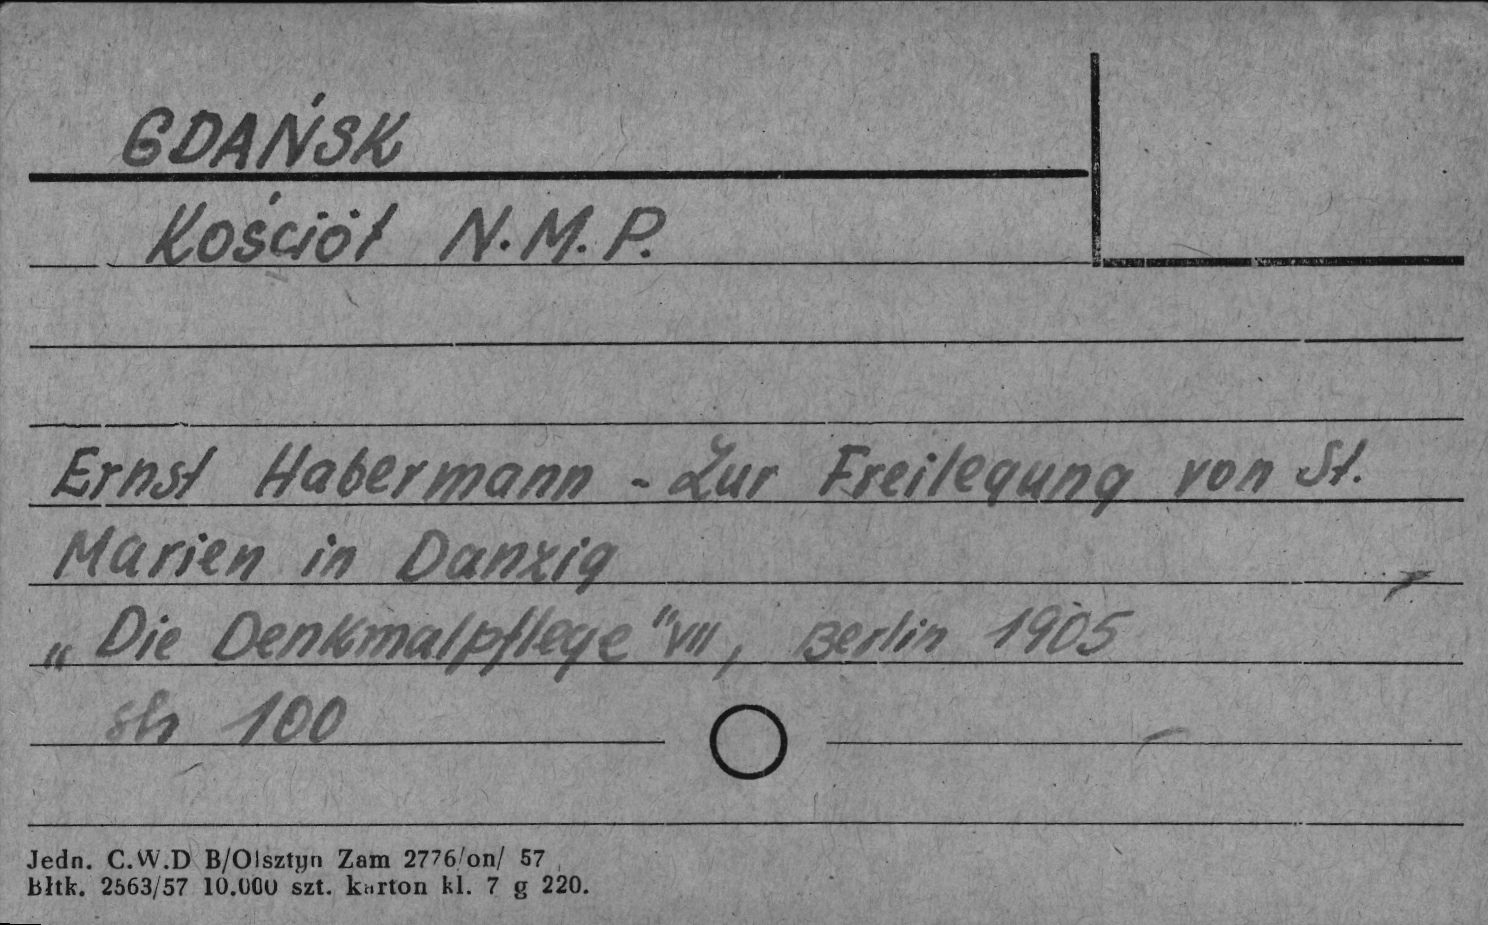 GDAŃSK
Kościół N.M.P.
Ernst Habermann - Zur Freilegung von St.
Marien in Danzig
„Die Denkmalpflege" VII, Berlin 1905
sh 100
Jedn. C.W.D B/Olsztyn Zam 2776/on/ 57
Błtk. 2563/57 10.000 szt. karton kl. 7 g 220.